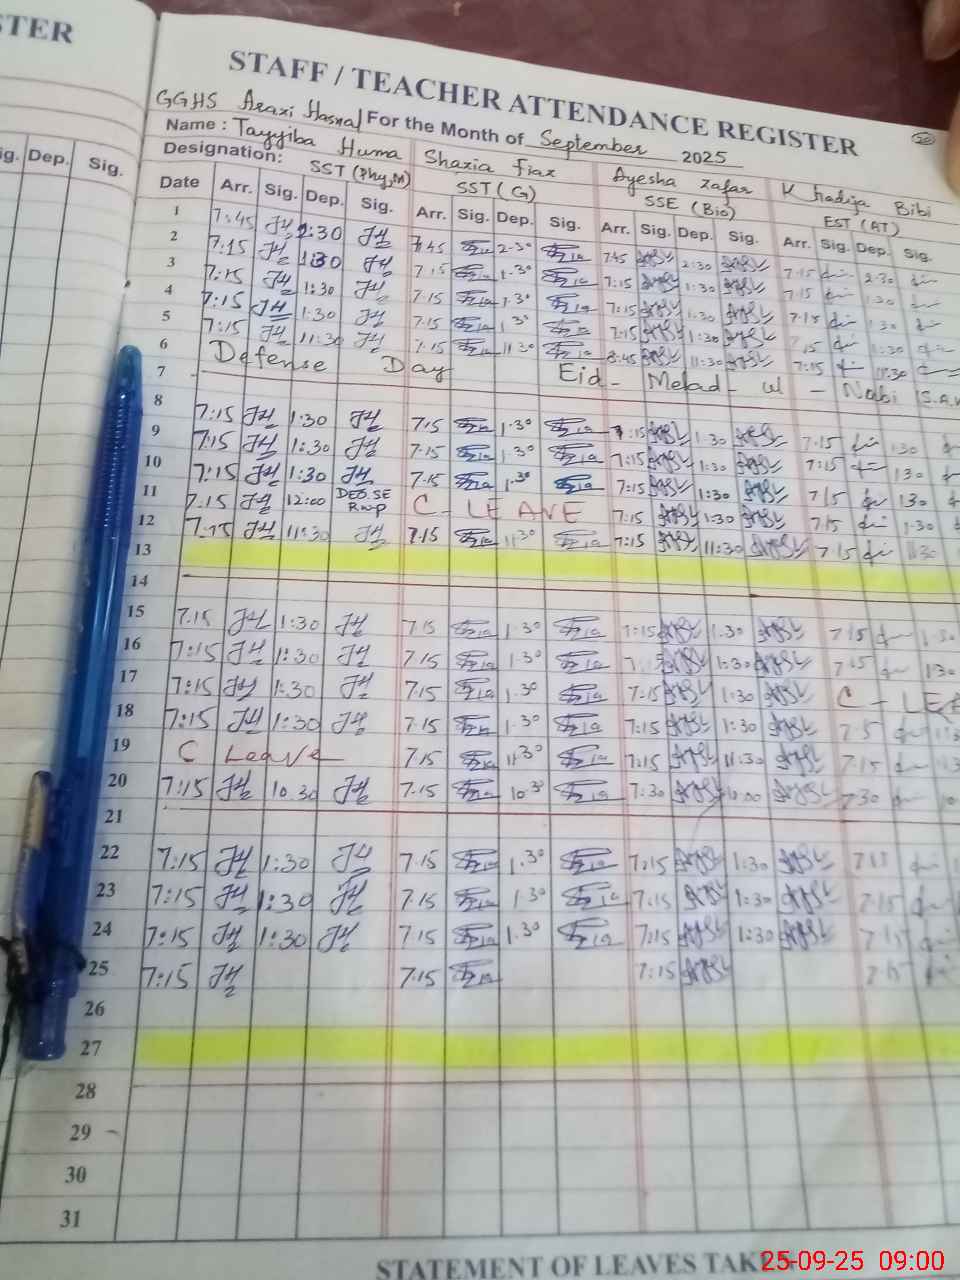 STER
STAFF / TEACHER ATTENDANCE REGISTER
GGHS Araxi Hasnal For the Month of September 2025
Name : Tayyiba Huma Shazia Fiaz Ayesha Zafar Khadija Bibi
Designation: SST (Phy,M) SST (G) SSE (Bio) EST (AT)
ig. Dep. Sig.
Date Arr. Sig. Dep. Sig. Arr. Sig. Dep. Sig. Arr. Sig. Dep. Sig. Arr. Sig. Dep. Sig.
1 7:45 2:30 7.45 2.30 7:45 2:30 7.15 2.30
2 7:15 1:30 7.15 1.30 7:15 1:30 7.15 1.30
3 7:15 1:30 7.15 1.30 7:15 1:30 7.15 1.30
4 7:15 1:30 7.15 1.30 7:15 1:30 7.15 1:30
5 7:15 11:30 7.15 11.30 8:45 11:30 7:15 11.30
6 Defense Day Eid - Melad - ul - Nabi (S.A.W
7
8 7:15 1:30 7.15 1.30 7:15 1:30 7.15 1 30
9 7:15 1:30 7.15 1.30 7:15 1:30 7:15 1 30
10 7:15 1:30 7.15 1.30 7:15 1:30 7 15 1 30
11 7.15 12:00 DEO.SE RWP C - LEAVE 7:15 1:30 7.15 1.30
12 7:15 11:30 7.15 11.30 7:15 11:30 7 15 11 30
13
14
15 7.15 1:30 7.15 1.30 7:15 1.30 7.15 1.30
16 7:15 1:30 7.15 1.30 7:15 1:30 7.15 1 30
17 7:15 1:30 7.15 1.30 7:15 1:30 C - LEA
18 7:15 1:30 7.15 1.30 7:15 1:30 7.15
19 C Leave 7.15 11.30 7:15 11:30 7:15
20 7:15 10.30 7.15 10.30 7:30 10:00 7 30
21
22 7:15 1:30 7.15 1.30 7:15 1:30 7.15
23 7:15 1:30 7.15 1.30 7:15 1:30 7.15
24 7:15 1:30 7.15 1.30 7:15 1:30 7.15
25 7:15 7.15 7:15 7.15
26
27
28
29
30
31
STATEMENT OF LEAVES TAKEN
25-09-25 09:00